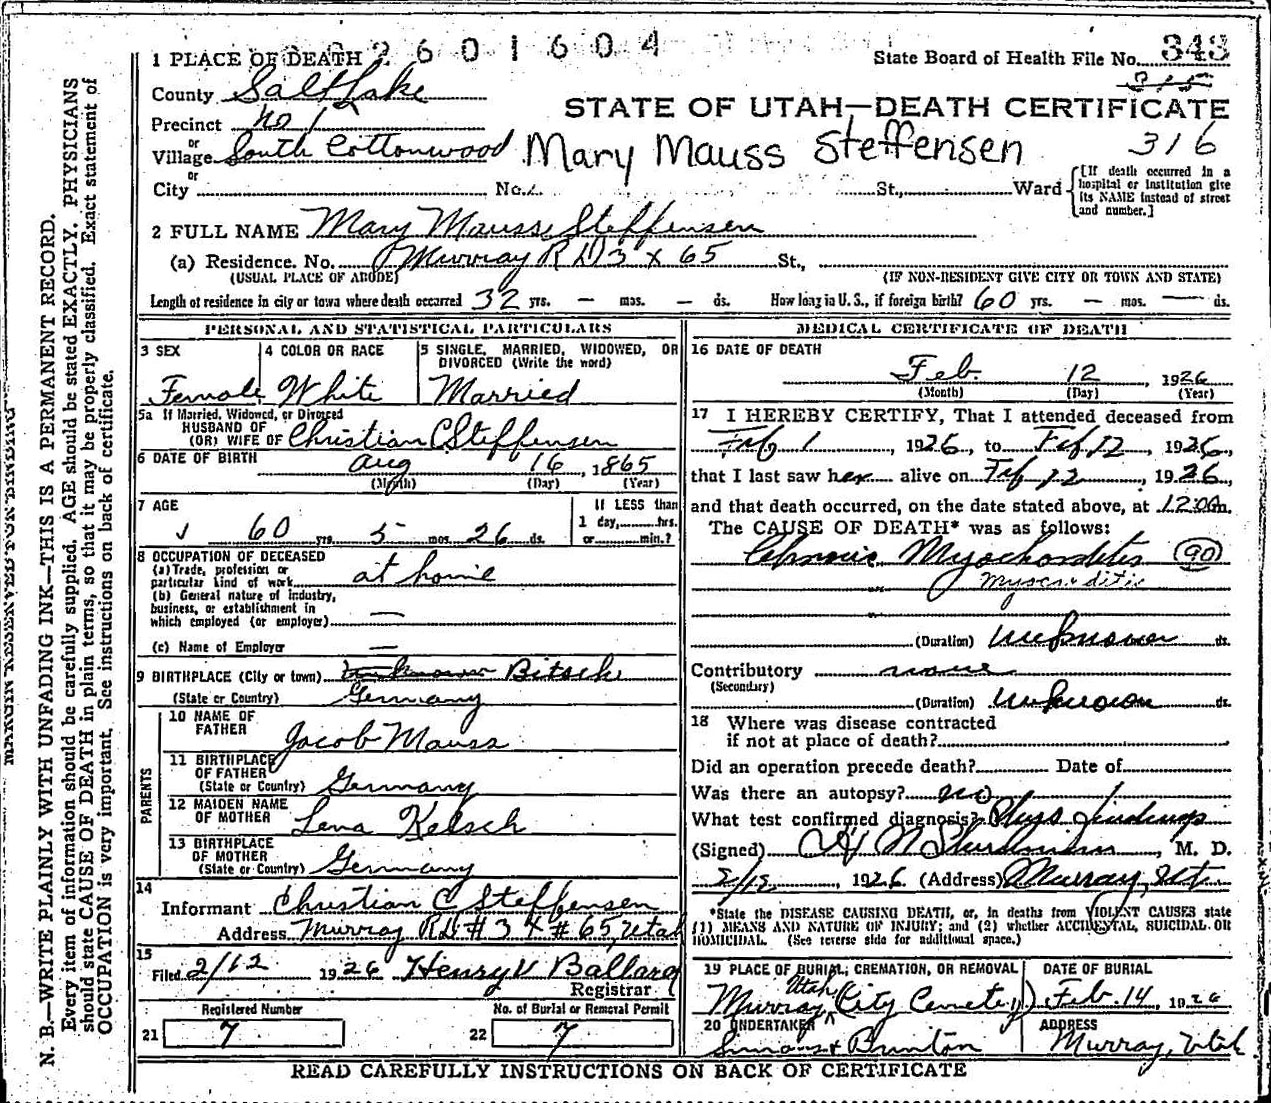 2601604
1 PLACE OF DEATH
State Board of Health File No. 343
315
County Salt Lake
STATE OF UTAH—DEATH CERTIFICATE
Precinct No 1
316
or
Village South Cottonwood Mary Mauss Steffensen
or
City No. St., Ward
[If death occurred in a hospital or institution give its NAME instead of street and number.]
2 FULL NAME Mary Mauss Steffensen
(a) Residence. No. Murray R D 3 x 65 St.,
(USUAL PLACE OF ABODE) (IF NON-RESIDENT GIVE CITY OR TOWN AND STATE)
Length of residence in city or town where death occurred 32 yrs. — mos. — ds. How long in U. S., if foreign birth? 60 yrs. — mos. — ds.
PERSONAL AND STATISTICAL PARTICULARS
3 SEX 4 COLOR OR RACE 5 SINGLE, MARRIED, WIDOWED, OR
DIVORCED (Write the word)
Female White Married
5a If Married, Widowed, or Divorced
HUSBAND OF
(OR) WIFE OF Christian C Steffensen
6 DATE OF BIRTH Aug 16, 1865
(Month) (Day) (Year)
7 AGE If LESS than
1 day, hrs.
60 yrs. 5 mos. 26 ds. or min.?
8 OCCUPATION OF DECEASED
(a) Trade, profession or
particular kind of work at home
(b) General nature of industry,
business, or establishment in
which employed (or employer) —
(c) Name of Employer —
9 BIRTHPLACE (City or town) unknown Bitsche
(State or Country) Germany
PARENTS
10 NAME OF
FATHER Jacob Mauss
11 BIRTHPLACE
OF FATHER
(State or Country) Germany
12 MAIDEN NAME
OF MOTHER Lena Kelsch
13 BIRTHPLACE
OF MOTHER
(State or Country) Germany
14
Informant Christian C Steffensen
Address Murray RD # 3 x # 65, Utah
15
Filed 2/12 1926 Henry V Ballard
Registrar
Registered Number No. of Burial or Removal Permit
21 7 22 7
MEDICAL CERTIFICATE OF DEATH
16 DATE OF DEATH
Feb. 12, 1926
(Month) (Day) (Year)
17 I HEREBY CERTIFY, That I attended deceased from
Feb 1, 1926, to Feb 12, 1926,
that I last saw her alive on Feb 12, 1926,
and that death occurred, on the date stated above, at 12:00 m.
The CAUSE OF DEATH* was as follows:
Chronic Myochorditis (90)
Myocarditis
(Duration) unknown ds.
Contributory none
(Secondary)
(Duration) unknown ds.
18 Where was disease contracted
if not at place of death?
Did an operation precede death? Date of
Was there an autopsy? no
What test confirmed diagnosis? Phys findings
(Signed) , M. D.
2/12, 1926 (Address) Murray, Ut
*State the DISEASE CAUSING DEATH, or, in deaths from VIOLENT CAUSES state
(1) MEANS AND NATURE OF INJURY; and (2) whether ACCIDENTAL, SUICIDAL OR
HOMICIDAL. (See reverse side for additional space.)
19 PLACE OF BURIAL, CREMATION, OR REMOVAL DATE OF BURIAL
Utah
Murray (City Cemetery) Feb. 14, 1926
20 UNDERTAKER ADDRESS
Murray, Utah
READ CAREFULLY INSTRUCTIONS ON BACK OF CERTIFICATE
MARGIN RESERVED FOR BINDING
N. B.—WRITE PLAINLY WITH UNFADING INK—THIS IS A PERMANENT RECORD.
Every item of information should be carefully supplied. AGE should be stated EXACTLY. PHYSICIANS
should state CAUSE OF DEATH in plain terms, so that it may be properly classified. Exact statement of
OCCUPATION is very important. See instructions on back of certificate.